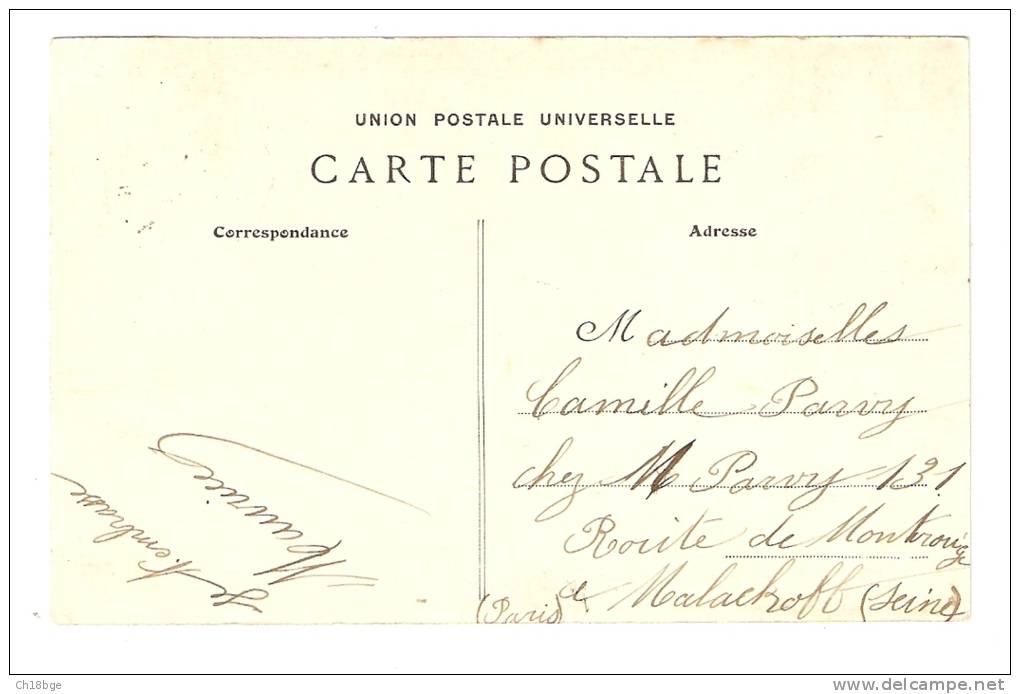 UNION POSTALE UNIVERSELLE
CARTE POSTALE
Correspondance
Adresse
Madmoiselles
Camille Parvy
chez M Parvy 131
Route de Montrouge
a Malackoff (Seine)
(Paris)
Je t'embrasse
Maurice
Ch18bge
www.delcampe.net